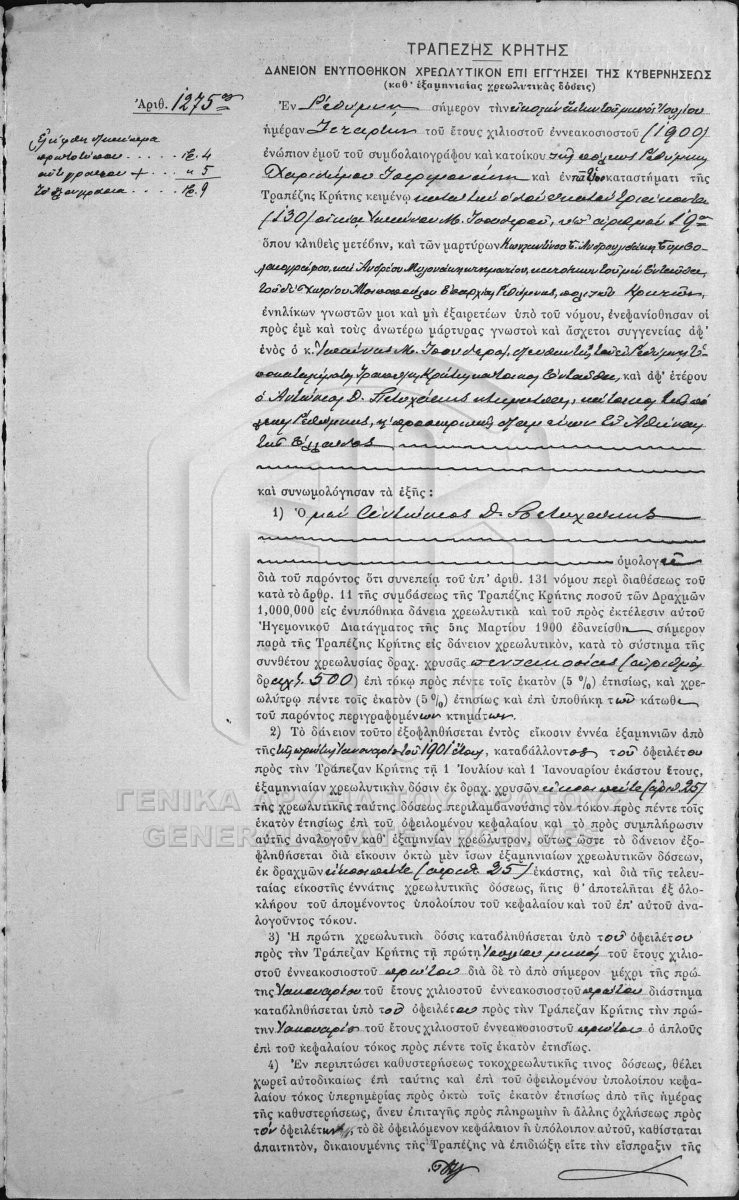 ΤΡΑΠΕΖΗΣ ΚΡΗΤΗΣ
ΔΑΝΕΙΟΝ ΕΝΥΠΟΘΗΚΟΝ ΧΡΕΩΛΥΤΙΚΟΝ ΕΠΙ ΕΓΓΥΗΣΕΙ ΤΗΣ ΚΥΒΕΡΝΗΣΕΩΣ
(καθ' ἑξαμηνιαίας χρεωλυτικὰς δόσεις)
Ἀριθ. 1275
πρωτοτύπου .... 4
ἀντιγράφου + .. " 5
9
Ἐν Ρεθύμνῃ σήμερον τὴν εἰκοστὴν ἕκτην τοῦ μηνὸς Ἰουλίου
ἡμέραν Τετάρτην τοῦ ἔτους χιλιοστοῦ ἐννεακοσιοστοῦ (1900)
ἐνώπιον ἐμοῦ τοῦ συμβολαιογράφου καὶ κατοίκου τῆς πόλεως Ρεθύμνης
καὶ ἐν τῷ καταστήματι τῆς
Τραπέζης Κρήτης κειμένῳ
(130) οἰκίας Ἰωάννου Μ. Τσουδεροῦ, ὑπ' ἀριθμὸν 19
ὅπου κληθεὶς μετέβην, καὶ τῶν μαρτύρων Κωνσταντίνου
καὶ Ἀνδρέου
Ρεθύμνης, πολιτῶν Κρητῶν,
ἐνηλίκων γνωστῶν μοι καὶ μὴ ἐξαιρετέων ὑπὸ τοῦ νόμου, ἐνεφανίσθησαν οἱ
πρὸς ἐμὲ καὶ τοὺς ἀνωτέρω μάρτυρας γνωστοὶ καὶ ἄσχετοι συγγενείας ἀφ'
ἑνὸς ὁ κ. Ἰωάννης Μ. Τσουδερός, διευθυντὴς τοῦ ἐν Ρεθύμνῃ ὑ-
ποκαταστήματος Τραπέζης Κρήτης κάτοικος ἐνταῦθα, καὶ ἀφ' ἑτέρου
ὁ Ἀντώνιος Θ. Πετυχάκης κτηματίας, κάτοικος τῆς πό-
λεως Ρεθύμνης, καὶ προσωρινῶς διαμένων ἐν Ἀθήναις
τῆς Ἑλλάδος
καὶ συνωμολόγησαν τὰ ἑξῆς:
1) Ὁ μὲν Ἀντώνιος Θ. Πετυχάκης
ὁμολογεῖ
διὰ τοῦ παρόντος ὅτι συνεπείᾳ τοῦ ὑπ' ἀριθ. 131 νόμου περὶ διαθέσεως τοῦ
κατὰ τὸ ἄρθρ. 11 τῆς συμβάσεως τῆς Τραπέζης Κρήτης ποσοῦ τῶν Δραχμῶν
1,000,000 εἰς ἐνυπόθηκα δάνεια χρεωλυτικὰ καὶ τοῦ πρὸς ἐκτέλεσιν αὐτοῦ
Ἡγεμονικοῦ Διατάγματος τῆς 5ης Μαρτίου 1900 ἐδανείσθη σήμερον
παρὰ τῆς Τραπέζης Κρήτης εἰς δάνειον χρεωλυτικὸν, κατὰ τὸ σύστημα τῆς
συνθέτου χρεωλυσίας δραχ. χρυσᾶς πεντακοσίας (ἀριθμ.
δραχ. 500) ἐπὶ τόκῳ πρὸς πέντε τοῖς ἑκατὸν (5 %) ἐτησίως, καὶ χρε-
ωλύτρῳ πέντε τοῖς ἑκατὸν (5 %) ἐτησίως καὶ ἐπὶ ὑποθήκῃ τῶν κάτωθι
τοῦ παρόντος περιγραφομένων κτημάτων.
2) Τὸ δάνειον τοῦτο ἐξοφληθήσεται ἐντὸς εἴκοσιν ἐννέα ἑξαμηνιῶν ἀπὸ
τῆς πρώτης Ἰανουαρίου τοῦ 1901 ἔτους, καταβάλλοντος τοῦ ὀφειλέτου
πρὸς τὴν Τράπεζαν Κρήτης τῇ 1 Ἰουλίου καὶ 1 Ἰανουαρίου ἑκάστου ἔτους,
ἑξαμηνιαίαν χρεωλυτικὴν δόσιν ἐκ δραχ. χρυσῶν εἴκοσι πέντε (ἀριθ. 25)
τῆς χρεωλυτικῆς ταύτης δόσεως περιλαμβανούσης τὸν τόκον πρὸς πέντε τοῖς
ἑκατὸν ἐτησίως ἐπὶ τοῦ ὀφειλομένου κεφαλαίου καὶ τὸ πρὸς συμπλήρωσιν
αὐτῆς ἀναλογοῦν καθ' ἑξαμηνίαν χρεώλυτρον, οὕτως ὥστε τὸ δάνειον ἐξο-
φληθήσεται διὰ εἴκοσιν ὀκτὼ μὲν ἴσων ἑξαμηνιαίων χρεωλυτικῶν δόσεων,
ἐκ δραχμῶν εἴκοσι πέντε (ἀριθ. 25) ἑκάστης, καὶ διὰ τῆς τελευ-
ταίας εἰκοστῆς ἐννάτης χρεωλυτικῆς δόσεως, ἥτις θ' ἀποτελῆται ἐξ ὁλο-
κλήρου τοῦ ἀπομένοντος ὑπολοίπου τοῦ κεφαλαίου καὶ τοῦ ἐπ' αὐτοῦ ἀνα-
λογοῦντος τόκου.
3) Ἡ πρώτη χρεωλυτικὴ δόσις καταβληθήσεται ὑπὸ τοῦ ὀφειλέτου
πρὸς τὴν Τράπεζαν Κρήτης τῇ πρώτῃ Ἰουλίου μηνὸς τοῦ ἔτους χιλιο-
στοῦ ἐννεακοσιοστοῦ πρώτου διὰ δὲ τὸ ἀπὸ σήμερον μέχρι τῆς πρώ-
της Ἰανουαρίου τοῦ ἔτους χιλιοστοῦ ἐννεακοσιοστοῦ πρώτου διάστημα
καταβληθήσεται ὑπὸ τοῦ ὀφειλέτου πρὸς τὴν Τράπεζαν Κρήτης τὴν πρώ-
την Ἰανουαρίου τοῦ ἔτους χιλιοστοῦ ἐννεακοσιοστοῦ πρώτου ὁ ἁπλοῦς
ἐπὶ τοῦ κεφαλαίου τόκος πρὸς πέντε τοῖς ἑκατὸν ἐτησίως.
4) Ἐν περιπτώσει καθυστερήσεως τοκοχρεωλυτικῆς τινος δόσεως, θέλει
χωρεῖ αὐτοδικαίως ἐπὶ ταύτης καὶ ἐπὶ τοῦ ὀφειλομένου ὑπολοίπου κεφα-
λαίου τόκος ὑπερημερίας πρὸς ὀκτὼ τοῖς ἑκατὸν ἐτησίως ἀπὸ τῆς ἡμέρας
τῆς καθυστερήσεως, ἄνευ ἐπιταγῆς πρὸς πληρωμὴν ἢ ἄλλης ὀχλήσεως πρὸς
τὸν ὀφειλέτην, τὸ δὲ ὀφειλόμενον κεφάλαιον ἢ ὑπόλοιπον αὐτοῦ, καθίσταται
ἀπαιτητὸν, δικαιουμένης τῆς Τραπέζης νὰ ἐπιδιώξῃ εἴτε τὴν εἴσπραξιν τῆς
ΓΕΝΙΚΑ ΑΡΧΕΙΑ ΤΟΥ ΚΡΑΤΟΥΣ
GENERAL STATE ARCHIVES